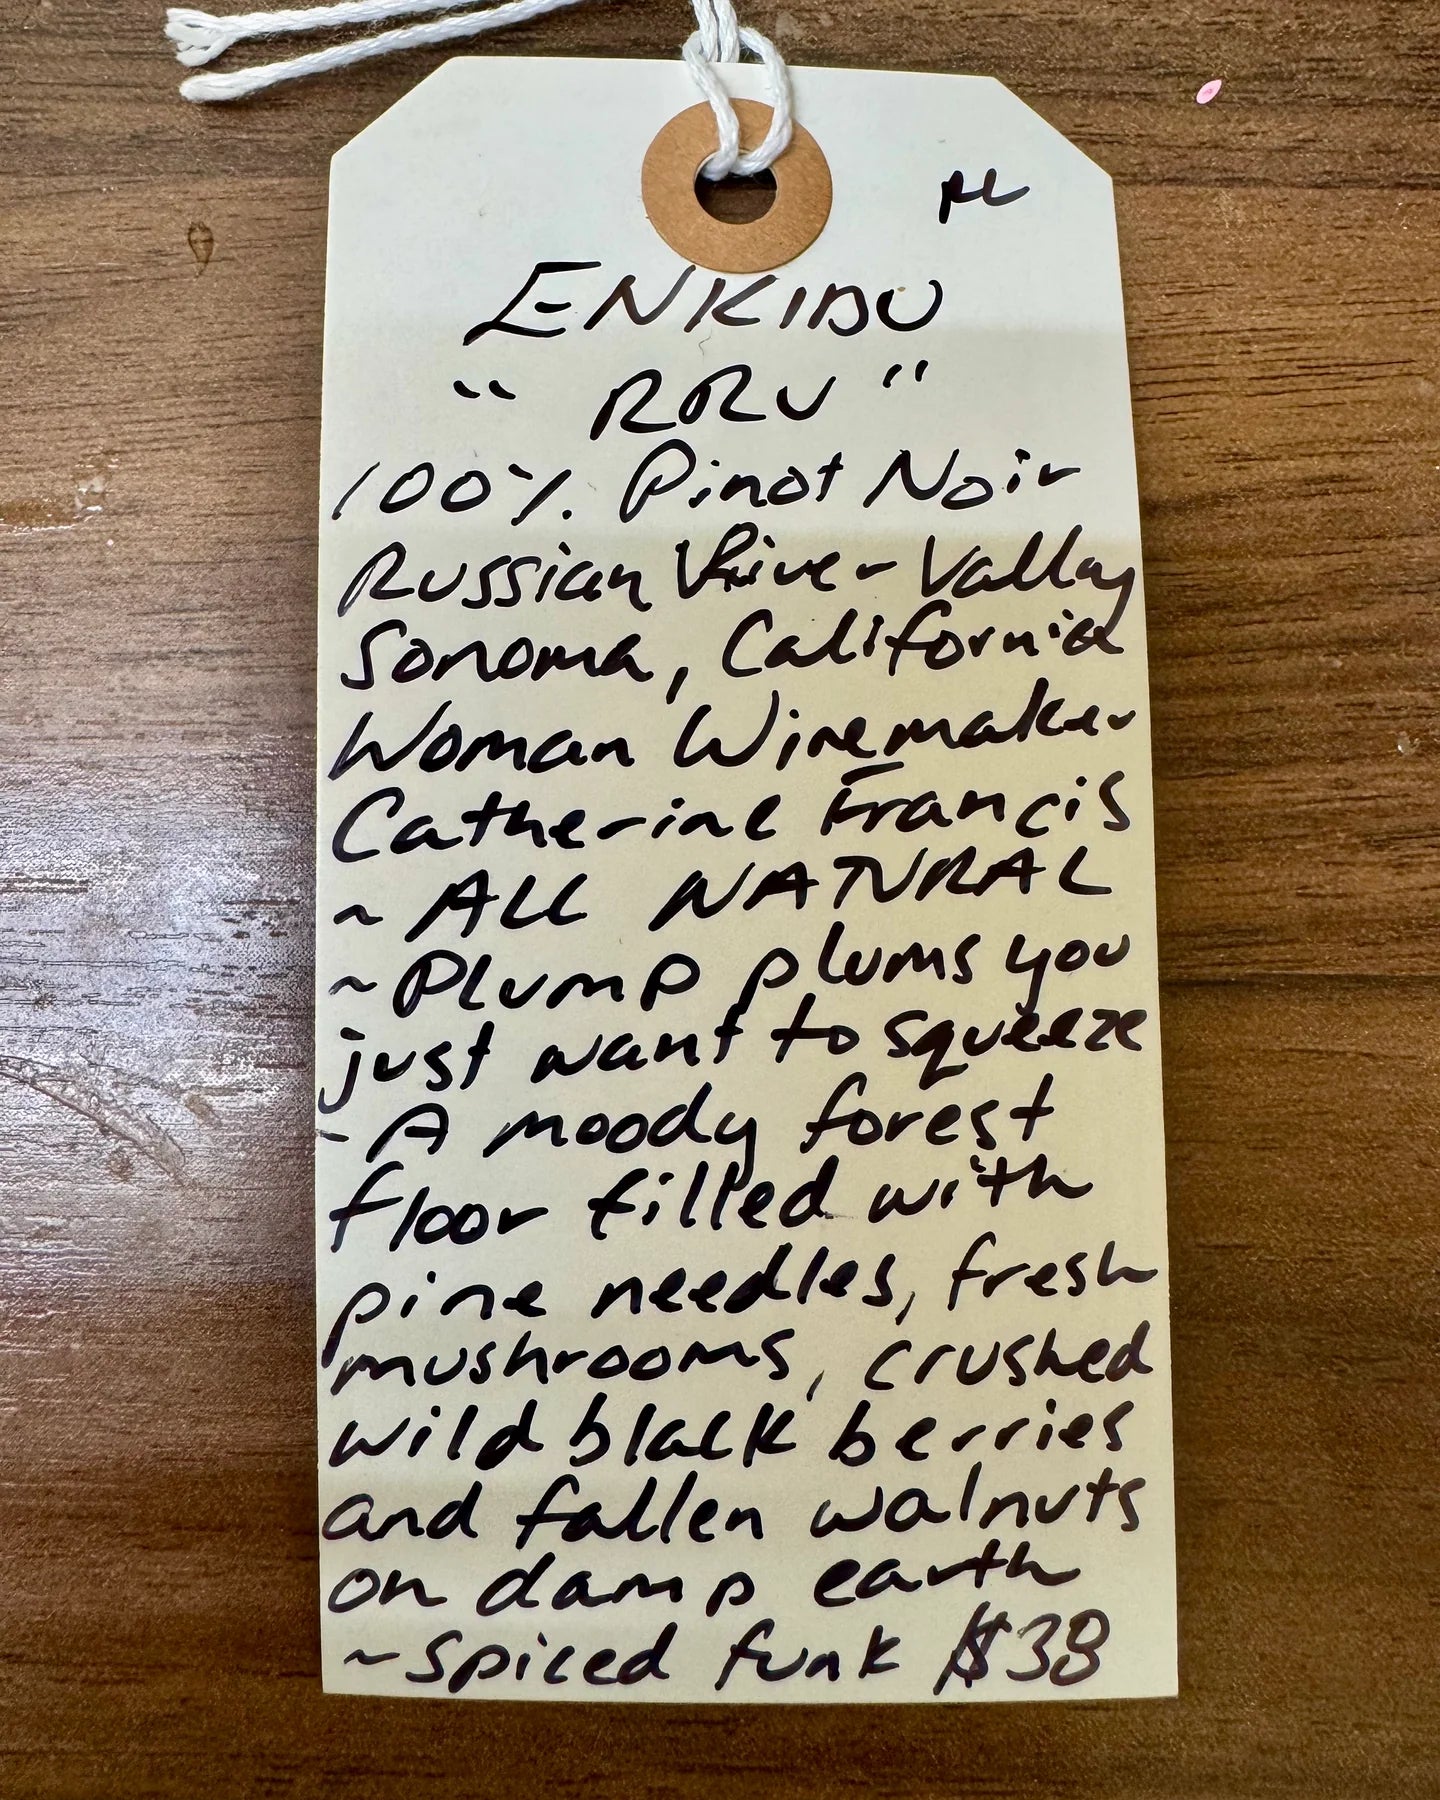 ENKIDU
"RRV"
100% Pinot Noir
Russian River Valley
Sonoma, California
Woman Winemaker
Catherine Francis
~ ALL NATURAL
~ PLUMP plums you
just want to squeeze
- A moody forest
floor filled with
pine needles, fresh
mushrooms, crushed
wild black berries
and fallen walnuts
on damp earth
~ Spiced funk $38